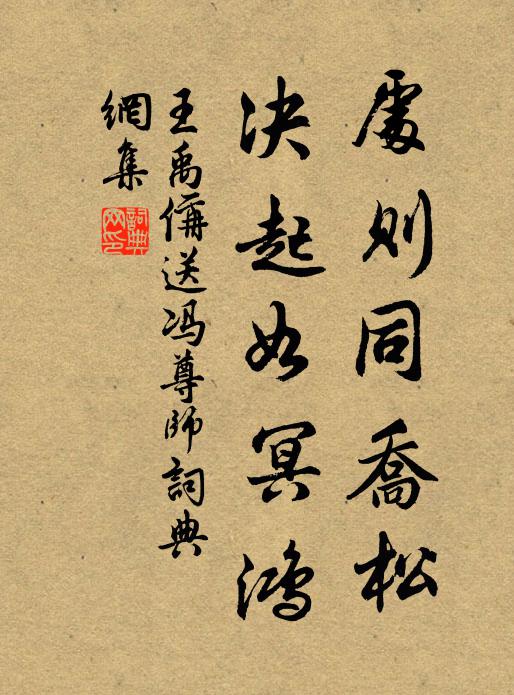 處則同喬松
決起如冥鴻
王禹偁送冯尊師詞典
網集
詞典
网印